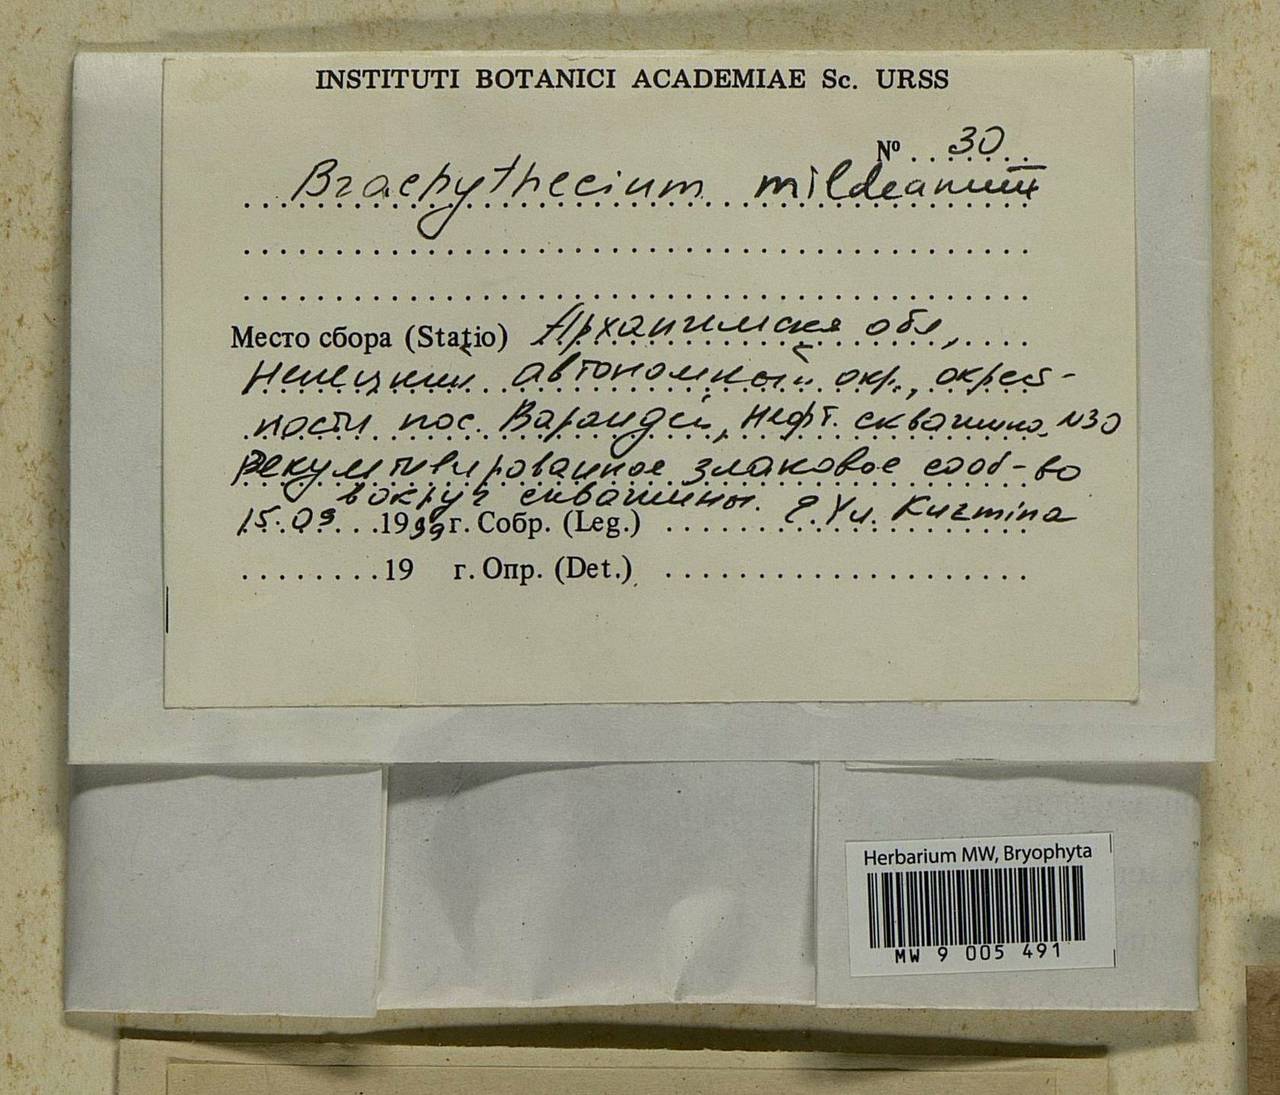 INSTITUTI BOTANICI ACADEMIAE Sc. URSS
№ 30
Brachythecium mildeanum
Место сбора (Statio) Архангельская обл,
Ненецкий автономный окр., окрест-
ности пос. Варандей, нефт. скважина N30
Рекультивированное злаковое сооб-во
вокруг скважины.
15.09 1999 г. Собр. (Leg.) E Yu. Kuzmina
19 г. Опр. (Det.)
Herbarium MW, Bryophyta
MW 9 005 491